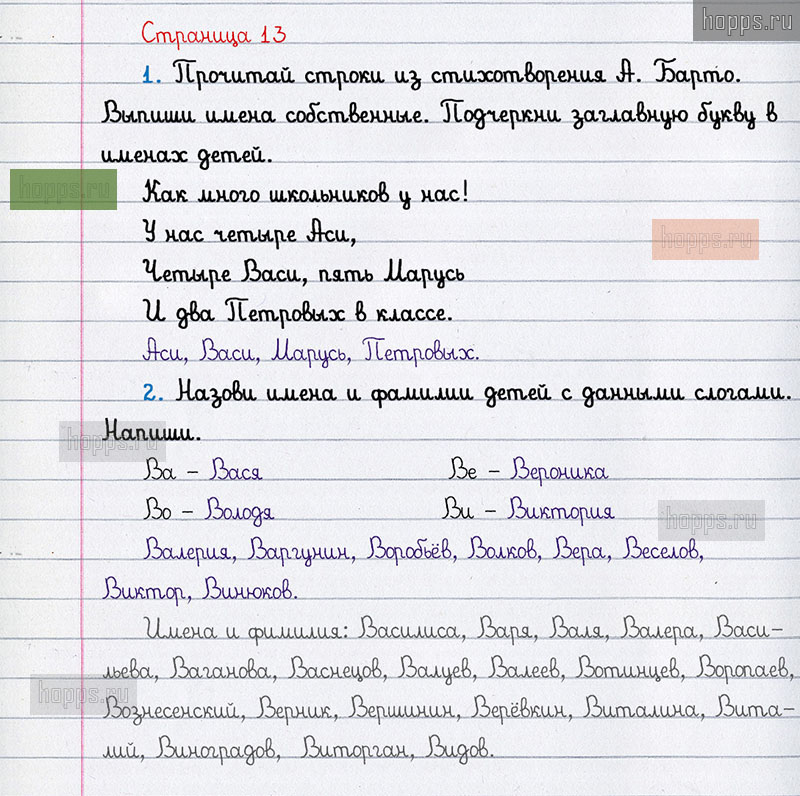 hopps.ru
Страница 13
1. Прочитай строки из стихотворения А. Барто.
Выпиши имена собственные. Подчеркни заглавную букву в
именах детей.
hopps.ru
Как много школьников у нас!
У нас четыре Аси,
hopps.ru
Четыре Васи, пять Марусь
И два Петровых в классе.
Аси, Васи, Марусь, Петровых.
2. Назови имена и фамилии детей с данными слогами.
Напиши.
hopps.ru
Ва – Вася Ве – Вероника
Во – Володя Ви – Виктория
hopps.ru
Валерия, Варгунин, Воробьёв, Волков, Вера, Веселов,
Виктор, Винюков.
Имена и фимилия: Василиса, Варя, Валя, Валера, Васи-
льева, Ваганова, Васнецов, Валуев, Валеев, Вотинцев, Воропаев,
hopps.ru
Вознесенский, Верник, Вершинин, Верёвкин, Виталина, Вита-
лий, Виноградов, Виторган, Видов.